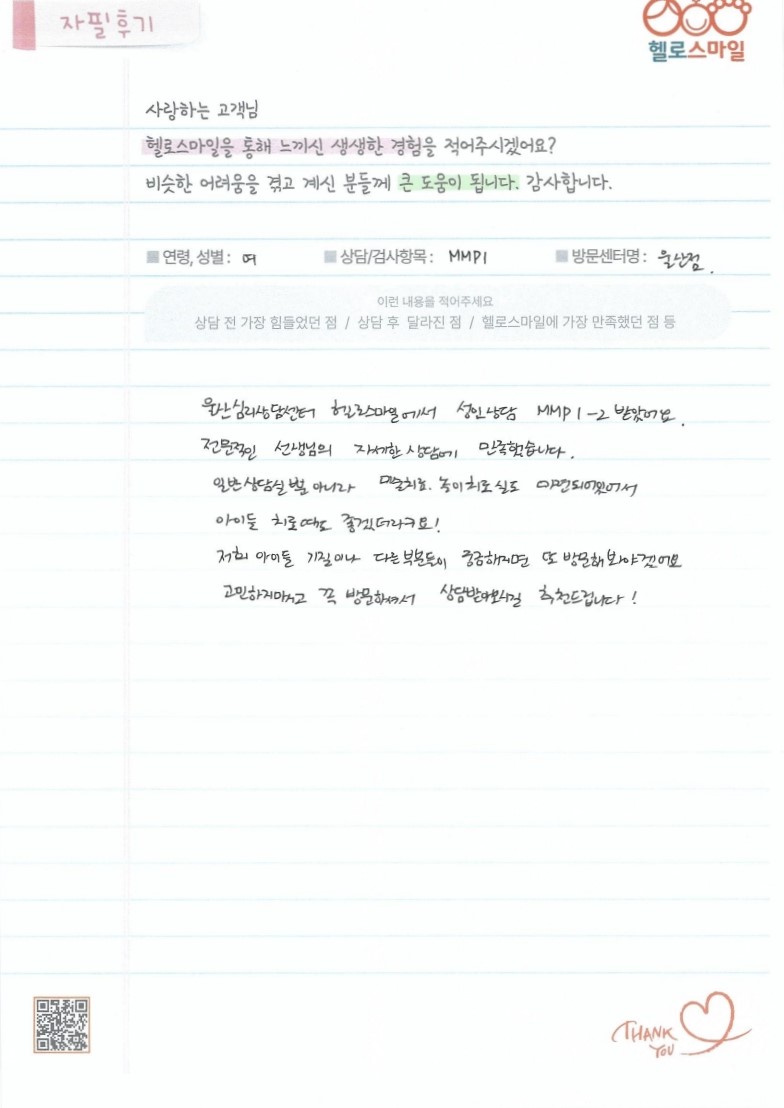 자필후기
헬로스마일
사랑하는 고객님
헬로스마일을 통해 느끼신 생생한 경험을 적어주시겠어요?
비슷한 어려움을 겪고 계신 분들께 큰 도움이 됩니다. 감사합니다.
연령, 성별 : 여 상담/검사항목 : MMPI 방문센터명 : 울산점.
이런 내용을 적어주세요
상담 전 가장 힘들었던 점 / 상담 후 달라진 점 / 헬로스마일에 가장 만족했던 점 등
울산심리상담센터 헬로스마일에서 성인상담 MMPI-2 받았어요.
전문적인 선생님의 자세한 상담에 만족했습니다.
일반상담실 뿐 아니라 미술치료. 놀이치료실도 마련되어있어서
아이들 치료에도 좋겠더라구요!
저희 아이들 기질이나 다른부분들이 궁금해지면 또 방문해봐야겠어요
고민하지마시고 꼭 방문하셔서 상담받아보시길 추천드립니다!
THANK
YOU